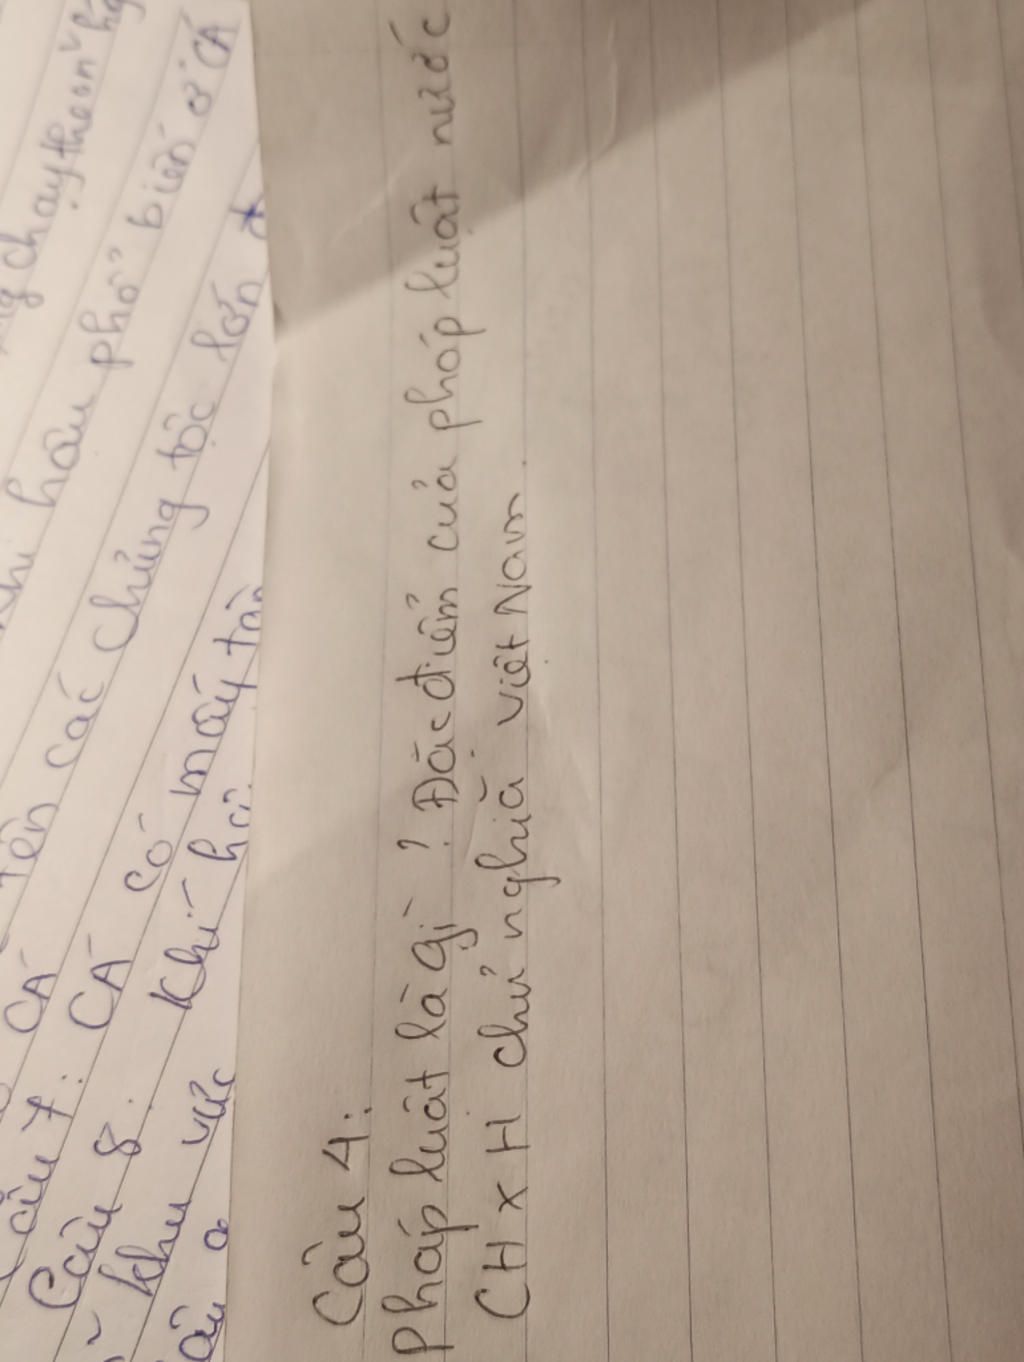 Câu 4:
Pháp luật là gì ? Đặc điểm của pháp luật nước
CHXH chủ nghĩa việt Nam.
chạy theo
hậu phổ biến ở CÁ
CÁ tên các chủng tộc lớn
Câu 7: CÁ có mấy
Câu 8: Khí
khu vực